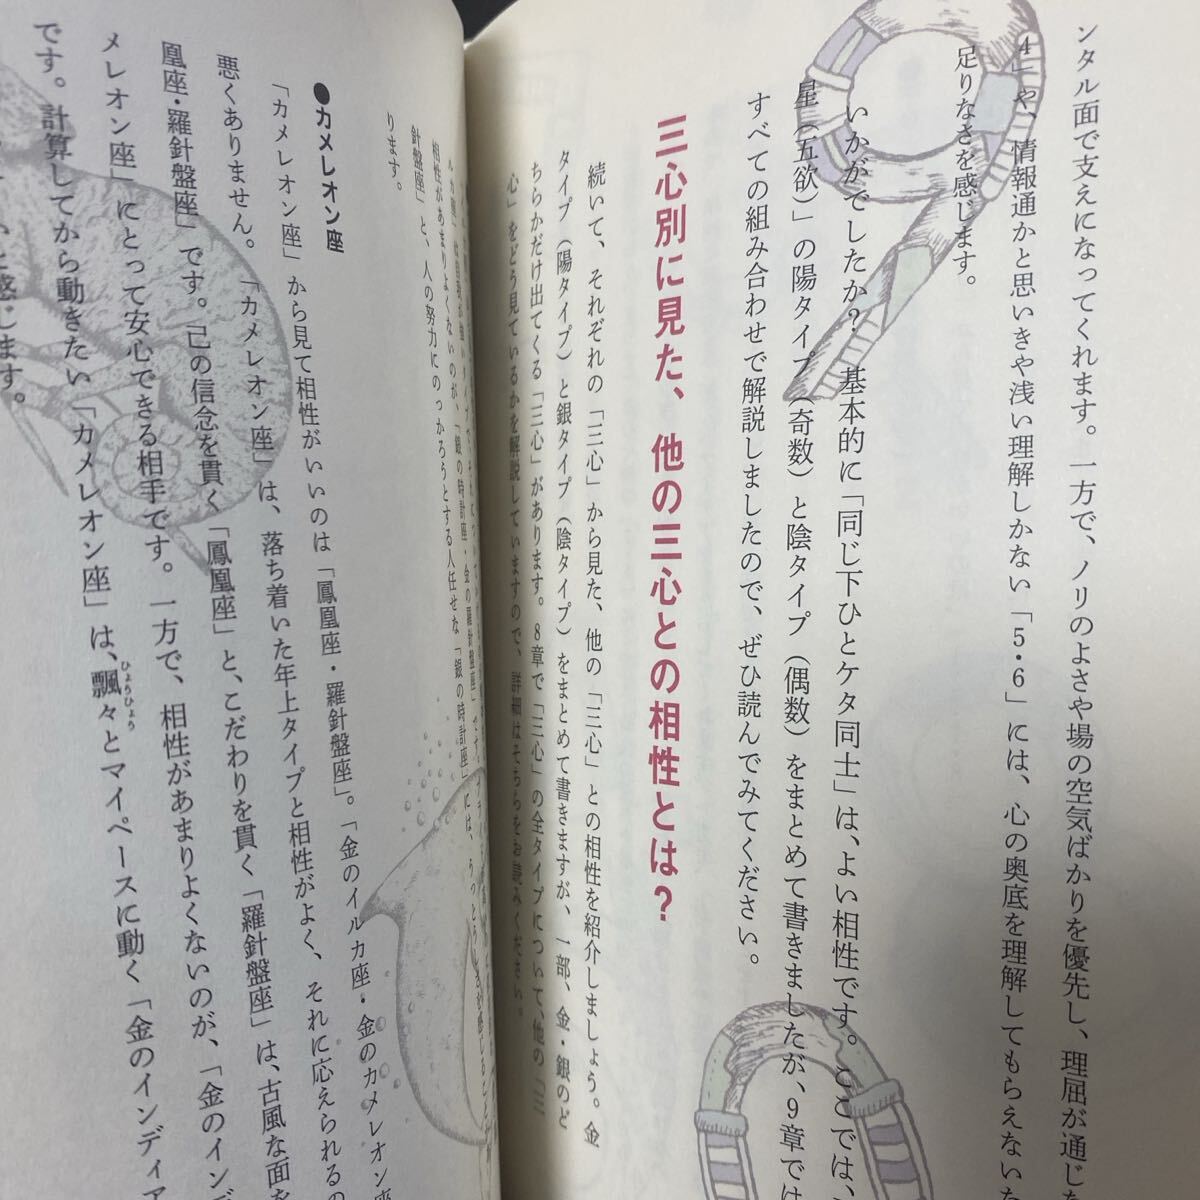 ンタル面で支えになってくれます。一方で、ノリのよさや場の空気ばかりを優先し、理屈が通じな
4」や、情報通かと思いきや浅い理解しかない「5・6」には、心の奥底を理解してもらえないた
足りなさを感じます。
いかがでしたか？ 基本的に「同じ下ひとケタ同士」は、よい相性です。ここでは、
星（五欲）」の陽タイプ（奇数）と陰タイプ（偶数）をまとめて書きましたが、9章では
すべての組み合わせで解説しましたので、ぜひ読んでみてください。
三心別に見た、他の三心との相性とは？
続いて、それぞれの「三心」から見た、他の「三心」との相性を紹介しましょう。金
タイプ（陽タイプ）と銀タイプ（陰タイプ）をまとめて書きますが、一部、金・銀のど
ちらかだけ出てくる「三心」があります。8章で「三心」の全タイプについて、他の「三
心」をどう見ているかを解説していますので、詳細はそちらをお読みください。
ルカ座」は自我が強いタイプで、
相性があまりよくないのが、「銀の時計座・金の羅針盤座」です。
針盤座」と、人の努力にのっかろうとする人任せな「銀の時計座」には、うっとうしさを感じることが
ります。
●カメレオン座
「カメレオン座」から見て相性がいいのは「鳳凰座・羅針盤座」。「金のイルカ座・金のカメレオン座
悪くありません。「カメレオン座」は、落ち着いた年上タイプと相性がよく、それに応えられるの
凰座・羅針盤座」です。己の信念を貫く「鳳凰座」と、こだわりを貫く「羅針盤座」は、古風な面を
メレオン座」にとって安心できる相手です。一方で、相性があまりよくないのが、「金のインデ
です。計算してから動きたい「カメレオン座」は、飄々とマイペースに動く「金のインディア
ひょうひょう
と感じます。